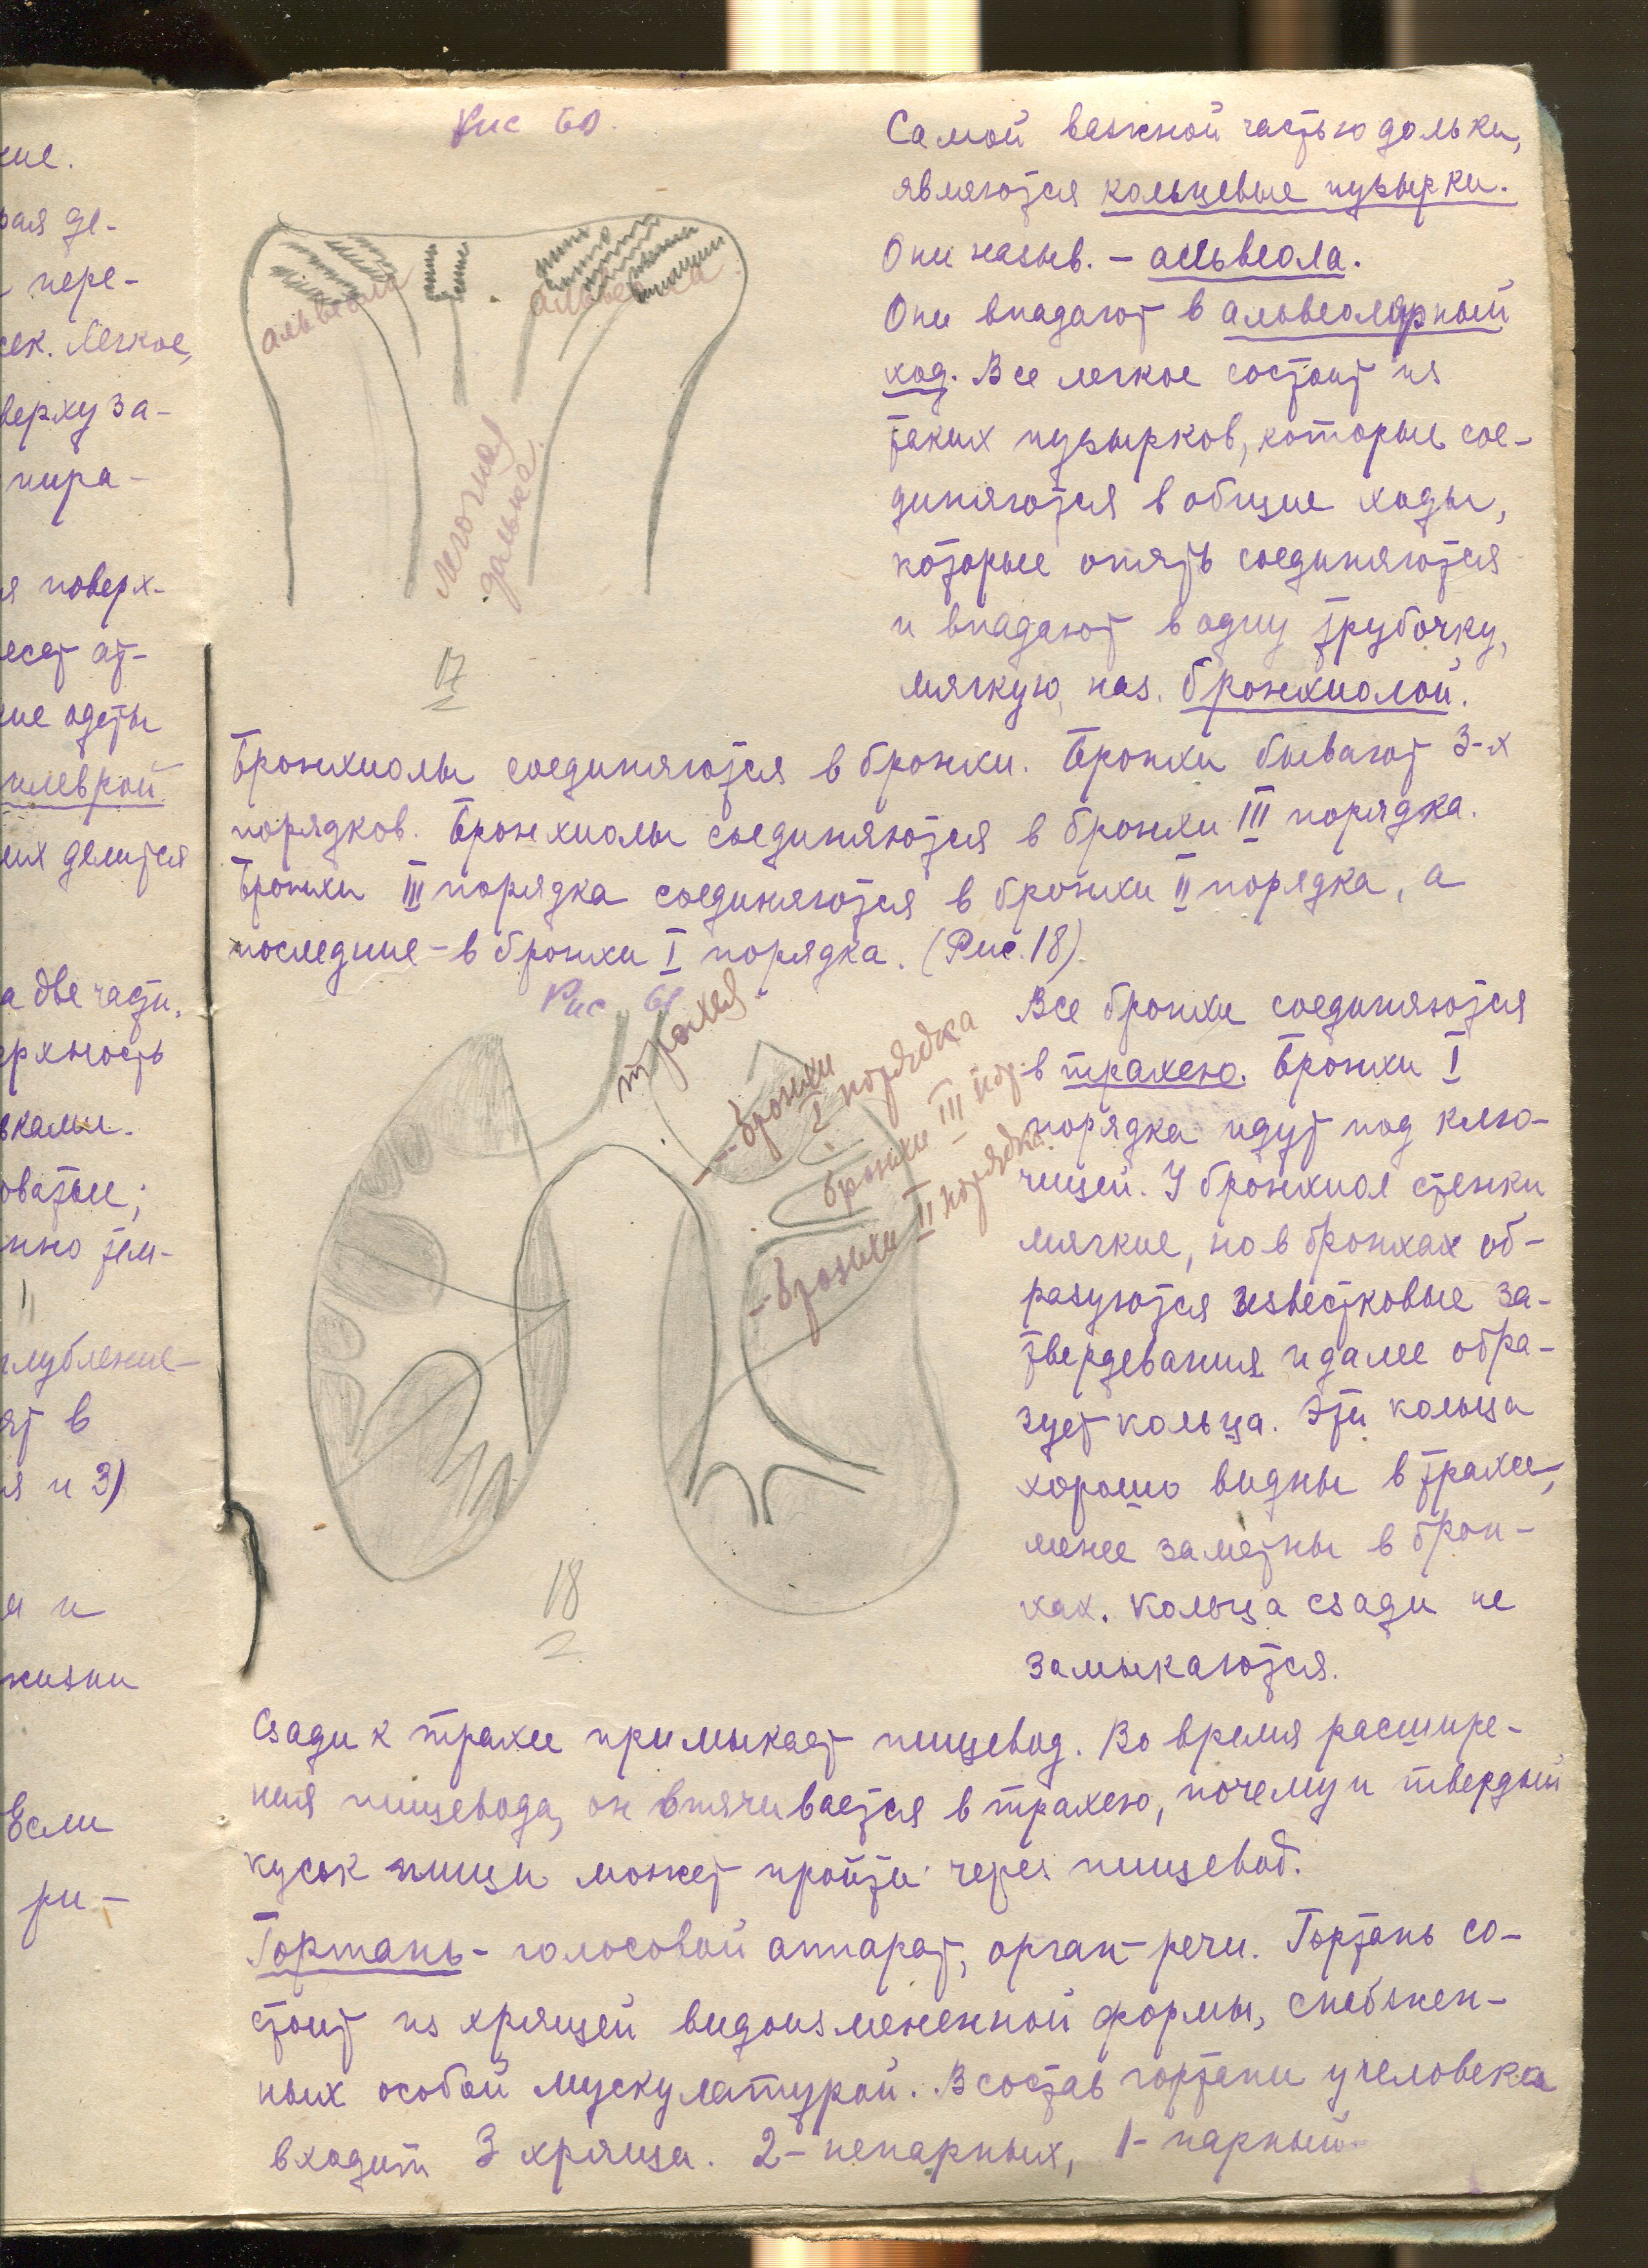 ние.
рая де-
- пере-
сек. Легкое,
верху за-
пира-
я поверх-
есет от-
кие одеты
плеврой
них делится
а две части.
ерхность
вками.
оватые;
нно тем-
"
глубление-
ят в
я и 3)
и и
жизни
Если
ри-
Рис 60.
альвеола
альвеола
легочная
далька.
17
Самой важной частью дольки,
являются кольцевые пузырки.
Они назыв. - альвеола.
Они впадают в альвеолярный
ход. Все легкое состоит из
таких пузырков, которые сое-
диняются в общие ходы,
которые опять соединяются
и впадают в одну трубочку,
мягкую, наз. бронхиолой.
Бронхиолы соединяются в бронхи. Бронхи бывают 3-х
порядков. Бронхиолы соединяются в бронхи III порядка.
Бронхи III порядка соединяются в бронхи II порядка, а
последние - в бронхи I порядка. (Рис. 18).
Рис 61
трахея
бронхи
I порядка
бронхи III пор.
бронхи II порядка.
18
Все бронхи соединяются
в трахею. Бронхи I
порядка идут под клю-
чицей. У бронхиол стенки
мягкие, но в бронхах об-
разуются известковые за-
твердевания и далее обра-
зует кольца. Эти кольца
хорошо видны в трахее,
менее заметны в брон-
хах. Кольца сзади не
замыкаются.
Сзади к трахее примыкает пищевод. Во время расшире-
ния пищевода, он втячивается в трахею, почему и твердый
кусок пищи может пройти через пищевод.
Гортань - голосовой аппарат, орган речи. Гортань со-
стоит из хрящей видоизмененной формы, снабжен-
ных особой мускулатурой. В состав гортани у человека
входит 3 хряща. 2 - непарных, 1 - парный